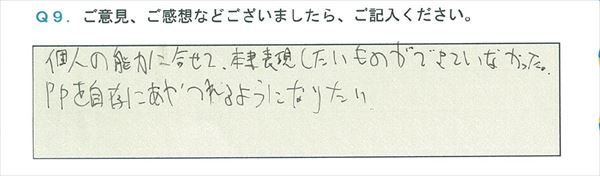 Q9. ご意見、ご感想などございましたら、ご記入ください。
個人の能力に合せて、本来表現したいものができていなかった。
PPを自在にあやつれるようになりたい